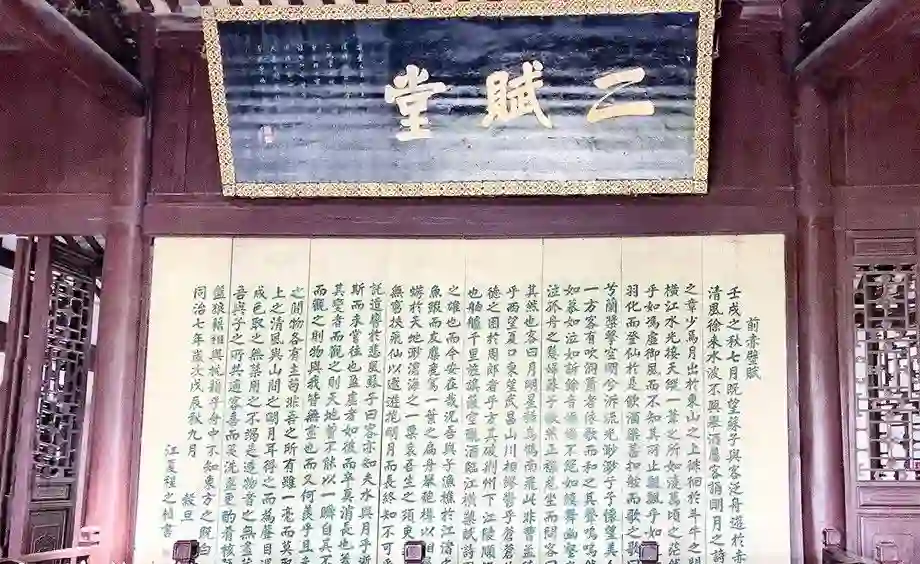 二賦堂
前赤壁賦
壬戌之秋七月既望蘇子與客泛舟遊於赤
清風徐來水波不興舉酒屬客誦明月之詩
之章少焉月出於東山之上徘徊于斗牛之間
橫江水光接天縱一葦之所如凌萬頃之茫然
乎如馮虛御風而不知其所止飄飄乎如
羽化而登仙於是飲酒樂甚扣舷而歌之歌
兮蘭槳擊空明兮泝流光渺渺兮于懷望美人
一方客有吹洞簫者倚歌而和之其聲嗚嗚然
如慕如泣如訴餘音嫋嫋不絕如縷舞幽壑
泣孤舟之嫠婦蘇子愀然正襟危坐而問客
其然也客曰月明星稀烏鵲南飛此非曹孟
乎西望夏口東望武昌山川相繆鬱乎蒼蒼
德之困於周郎者乎方其破荊州下江陵順
也舳艫千里旌旗蔽空釃酒臨江橫槊賦詩
之雄也而今安在哉況吾與子漁樵於江渚
魚蝦而友麋鹿駕一葉之扁舟舉匏樽以相
蜉蝣於天地渺滄海之一粟哀吾生之須臾
無窮挾飛仙以遨遊抱明月而長終知不可乎
託遺響於悲風蘇子曰客亦知夫水與月乎逝
斯而未嘗往也盈虛者如彼而卒莫消長也
其變者而觀之則天地曾不能以一瞬自其不
而觀之則物與我皆無盡也而又何羨乎且
之間物各有主苟非吾之所有雖一毫而莫取
上之清風與山間之明月耳得之而為聲目遇
成色取之無禁用之不竭是造物者之無盡
吾與子之所共適客喜而笑洗盞更酌肴核
盤狼藉相與枕藉乎舟中不知東方之既白
同治七年歲次戊辰秋九月 穀旦
江夏程之楨書